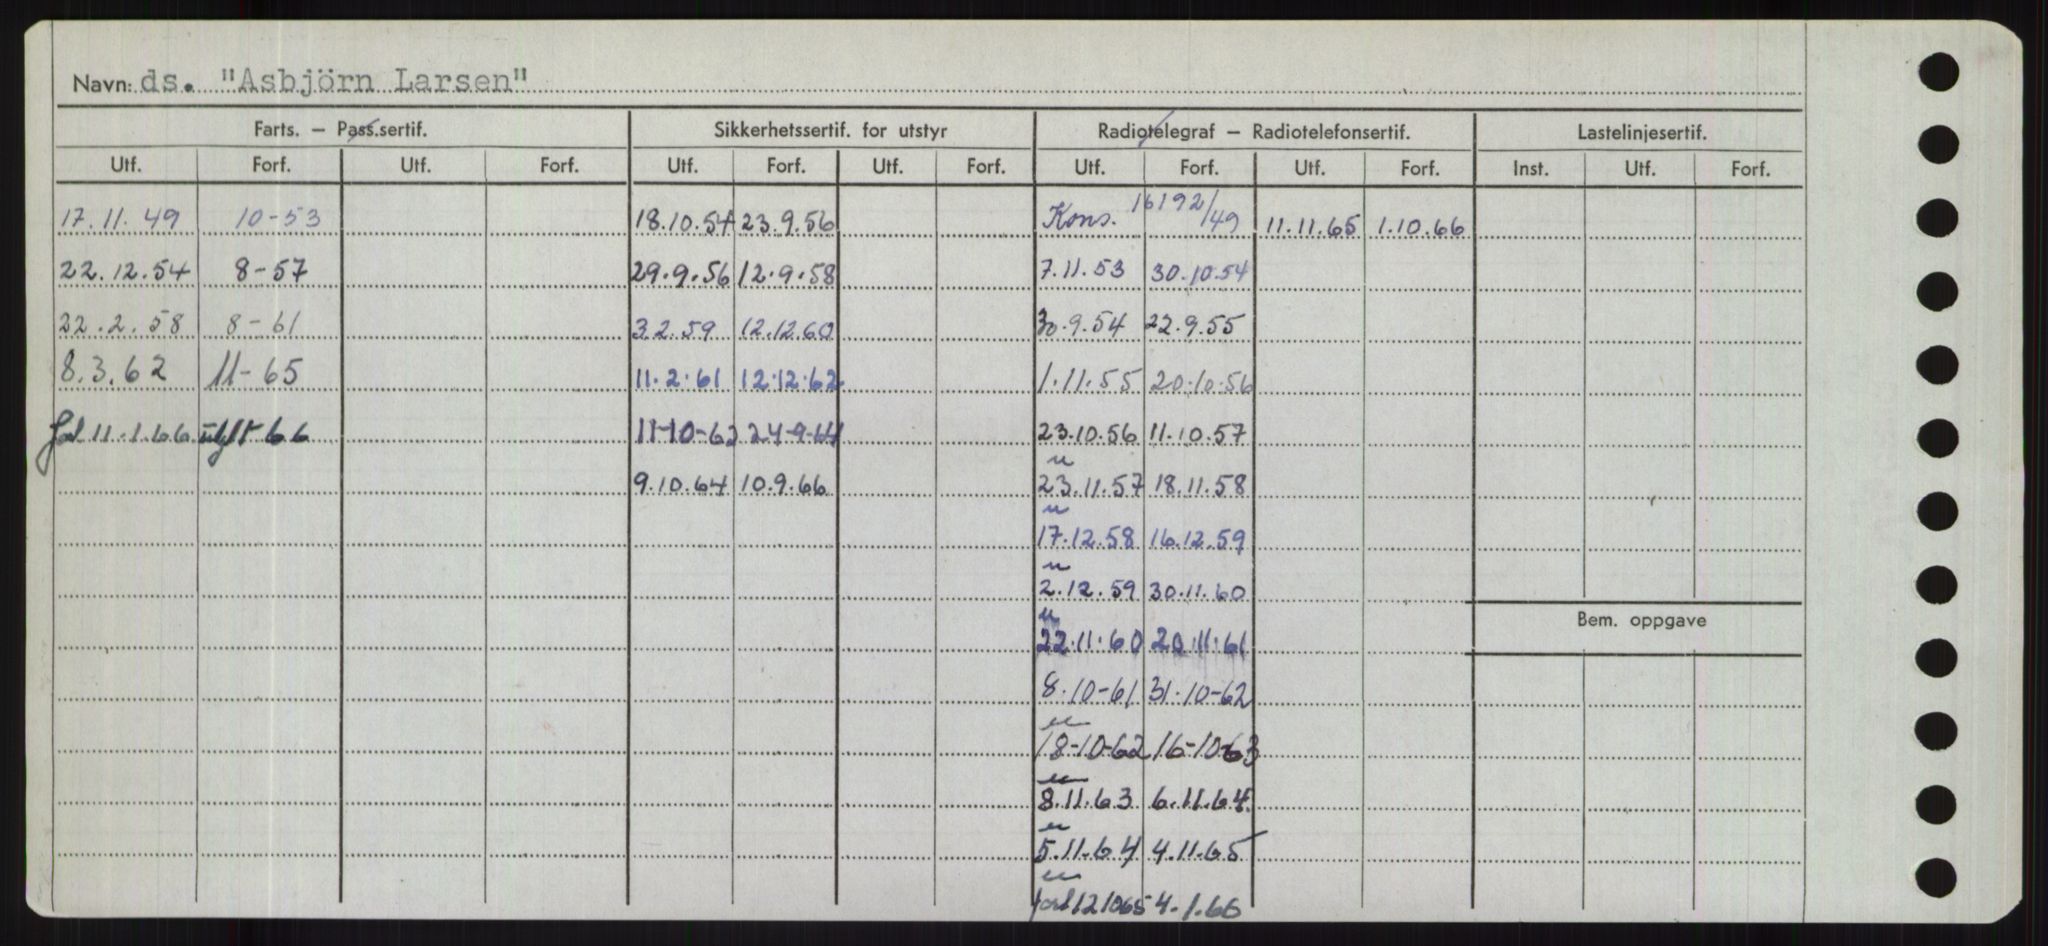 Navn: ds. "Asbjörn Larsen"
Farts. – Pass.sertif. Sikkerhetssertif. for utstyr Radiotelegraf – Radiotelefonsertif. Lastelinjesertif.
Utf. Forf. Utf. Forf. Utf. Forf. Utf. Forf. Utf. Forf. Utf. Forf. Inst. Utf. Forf.
17.11.49 10-53 18.10.54 23.9.56 Kons. 16192/49 11.11.65 1.10.66
22.12.54 8-57 29.9.56 12.9.58 7.11.53 30.10.54
22.2.58 8-61 3.2.59 12.12.60 30.9.54 22.9.55
8.3.62 11-65 11.2.61 12.12.62 1.11.55 20.10.56
11.1.66 66 11-10-62 24-9-64 23.10.56 11.10.57
u
9.10.64 10.9.66 23.11.57 18.11.58
u
17.12.58 16.12.59
u
2.12.59 30.11.60
u
22.11.60 20.11.61
8.10-61 31.10-62
u
18-10-62 16-10-63
u
8.11.63 6.11.64
u
5.11.64 4.11.65
u
forl 121065 4.1.66
Bem. oppgave